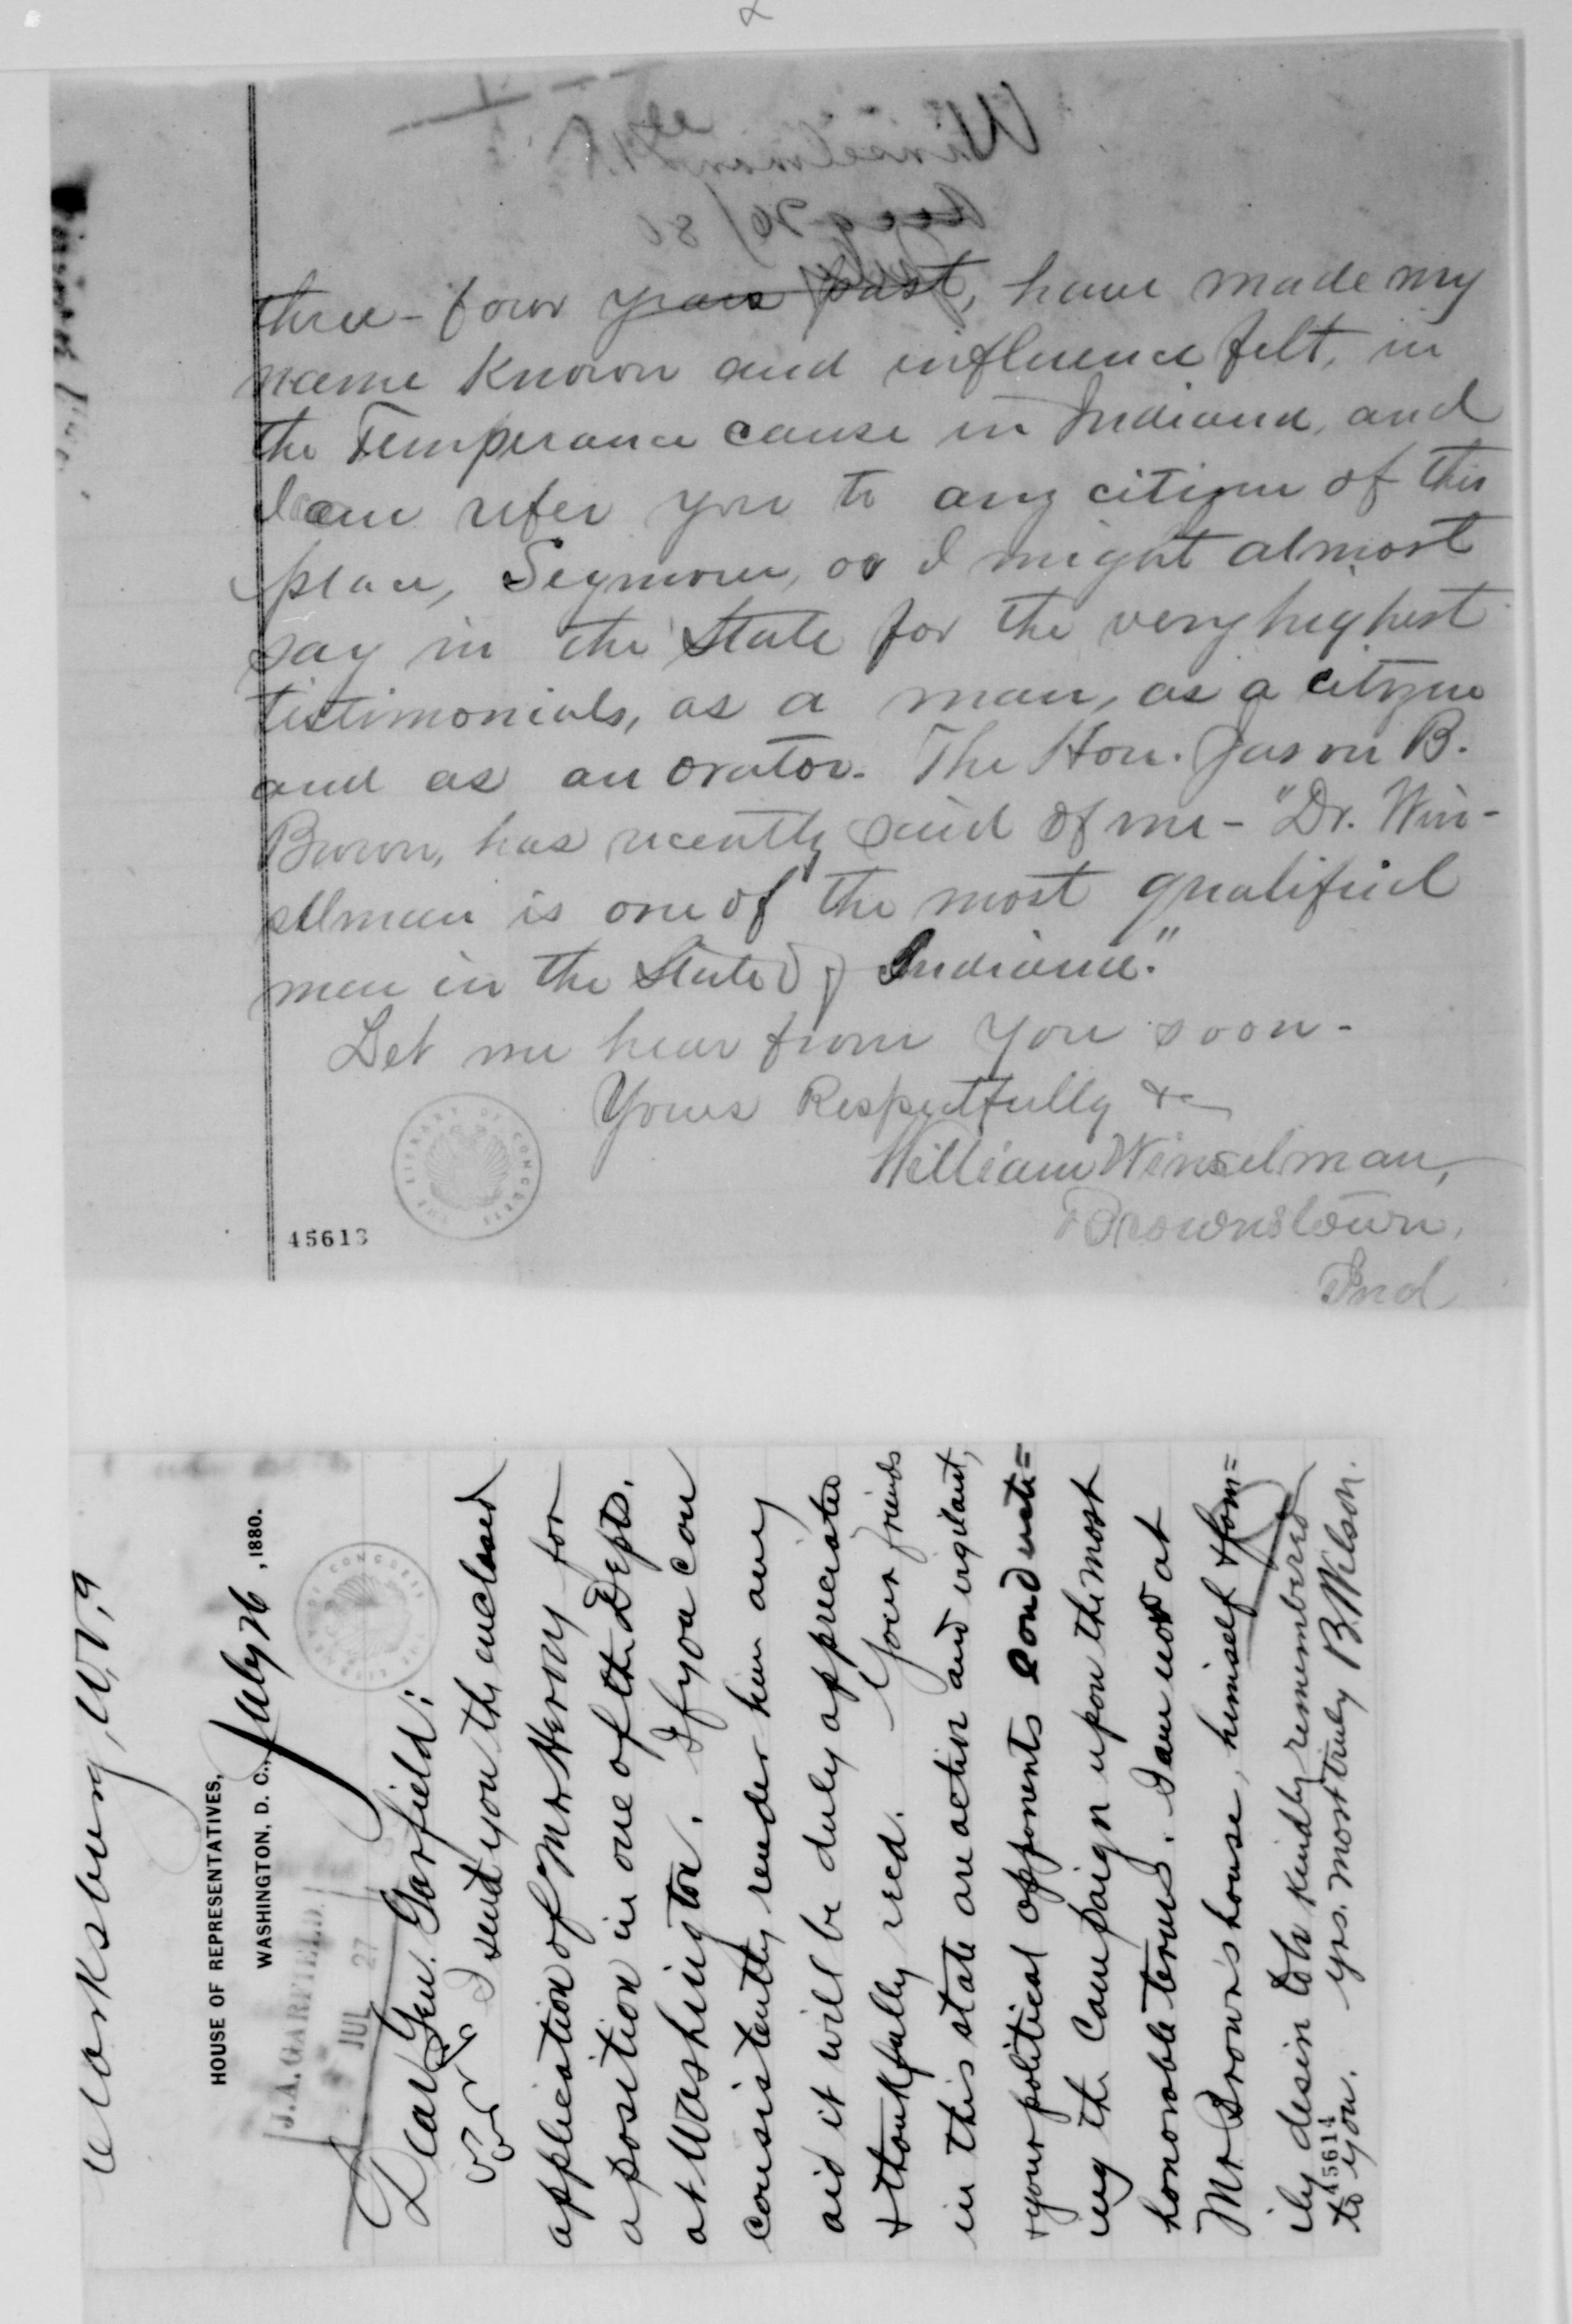 three-four years past, have made my
name known and influence felt, in
the Temperance cause in Indiana, and
I can refer you to any citizen of this
place, Seymour, or I might almost
say in the State for the very highest
testimonials, as a man, as a citizen
and as an orator. The Hon. Jason B.
Brown, has recently said of me - "Dr. Win-
selman is one of the most qualified
men in the State of Indiana."
Let me hear from you soon -
Yours Respectfully &c
William Winselman,
Brownstown,
Ind
THE LIBRARY OF CONGRESS
45613
Clarksburg, W.Va
HOUSE OF REPRESENTATIVES,
WASHINGTON, D. C., July 26, 1880.
J. A. GARFIELD.
JUL 27
THE LIBRARY OF CONGRESS
Dear Gen. Garfield:
I send you the enclosed
application of Mr Hervey for
a position in one of the Depts.
at Washington. If you can
consistently render him any
aid it will be duly appreciated
& thankfully recd. Your friends
in this state are active and vigilant,
& your political opponents conduct=
ing the Campaign upon the most
honorable terms. I am now at
Mr Brown's house, himself & fam=
ily desire to be kindly remembered
to you. yrs. most truly B. Wilson.
45614